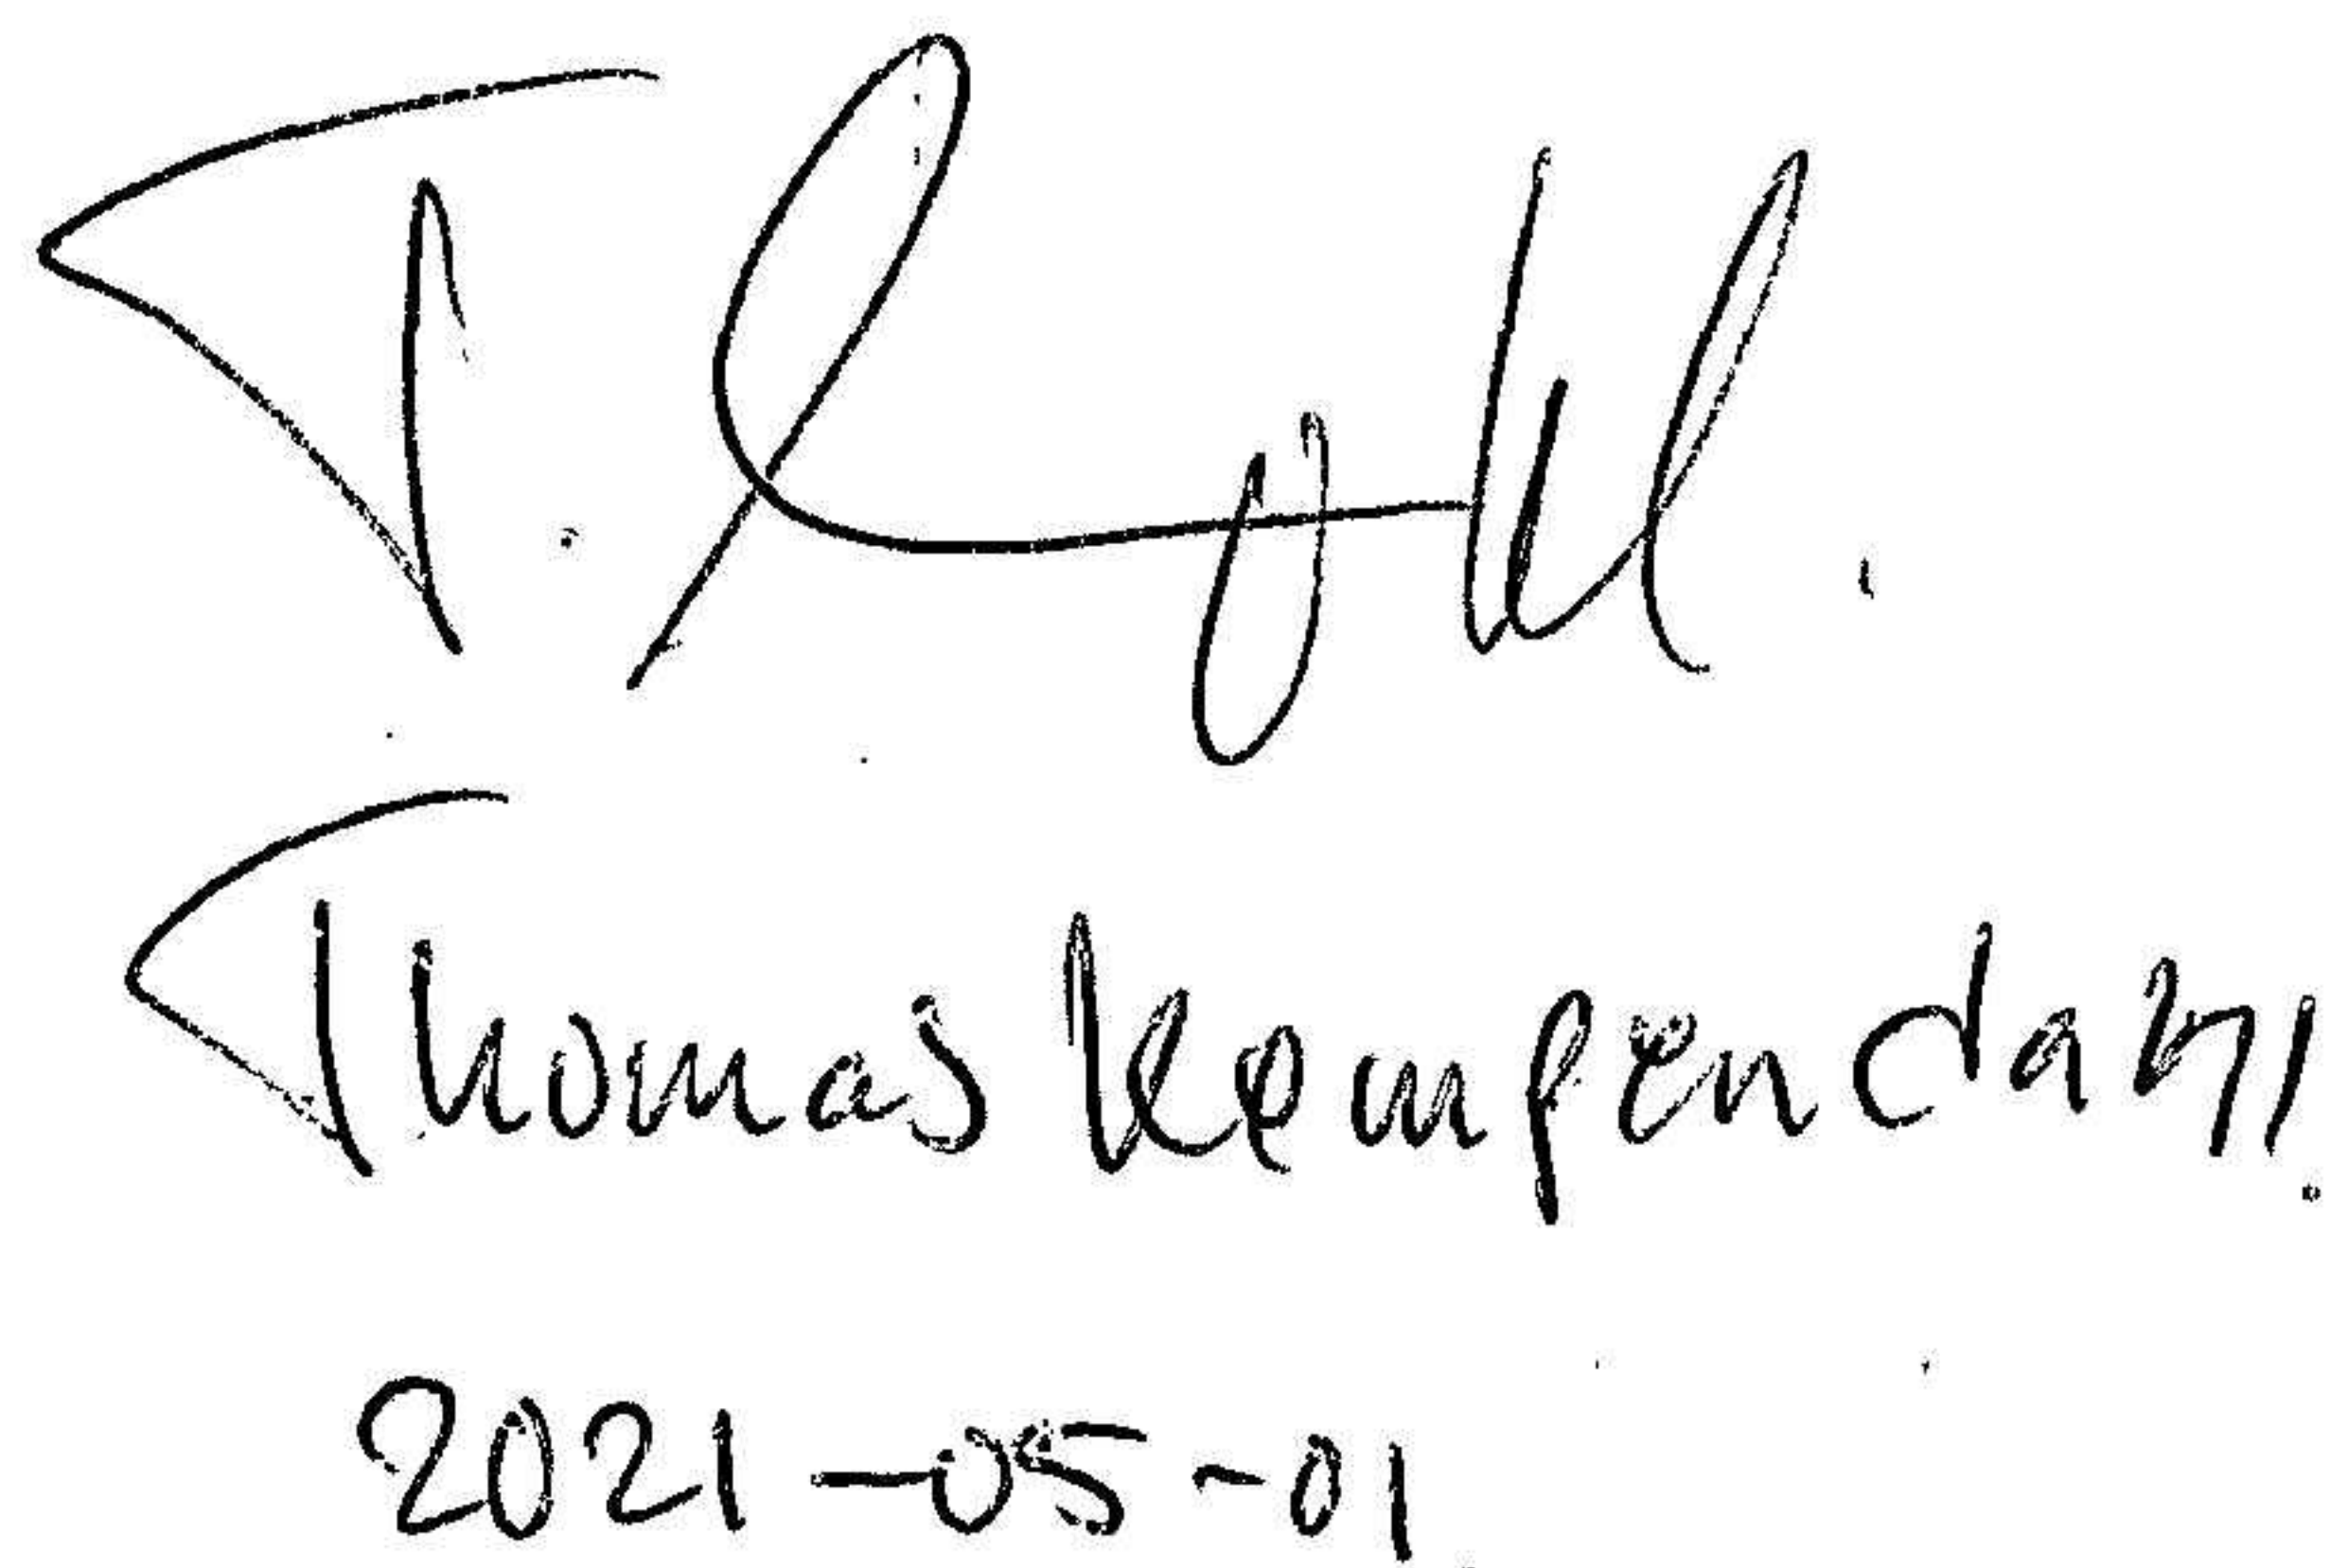 Thomas Kempendahl
2021-05-01